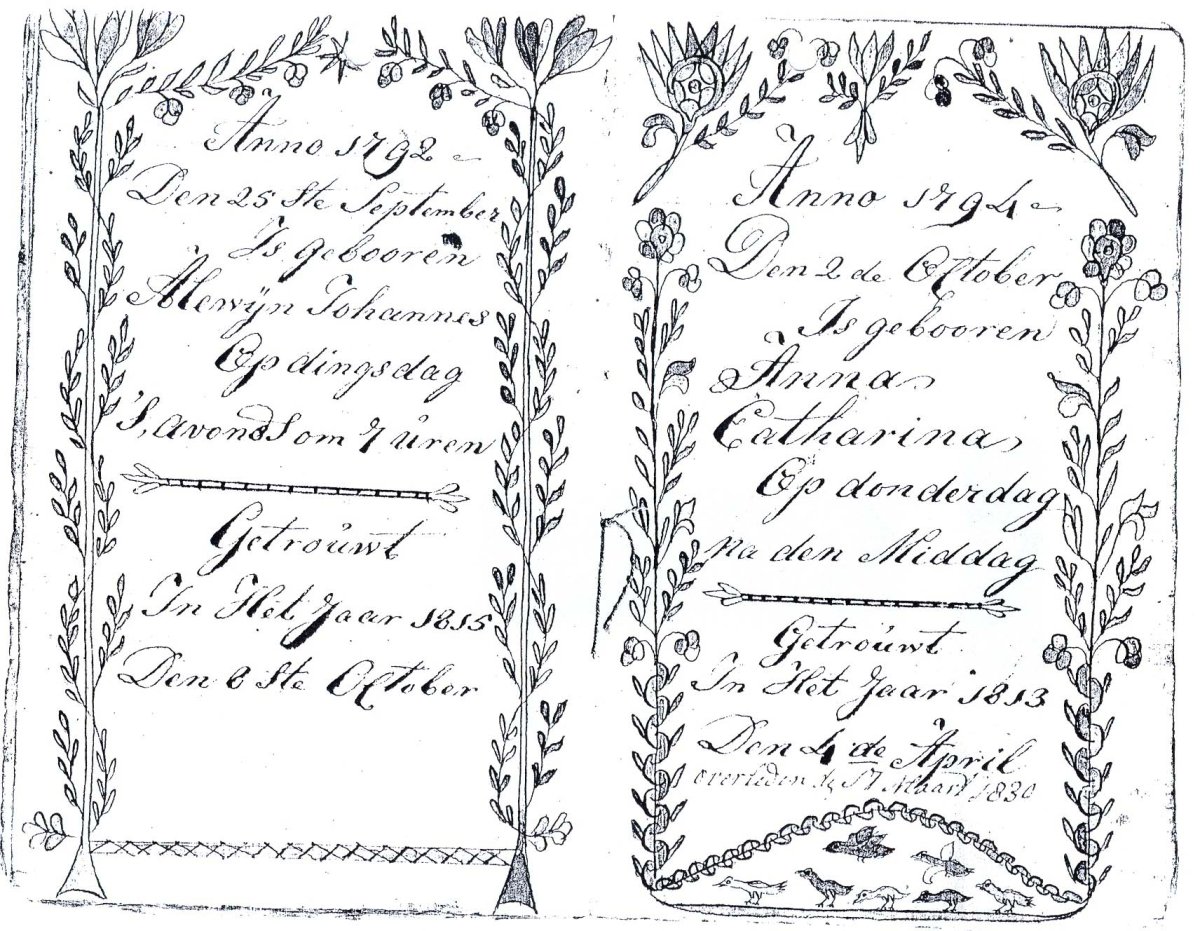 Anno 1792
Den 25 Ste September
Is gebooren
Alewÿn Johannes
Op dingsdag
'S, avonds om 7 uren
Getrouwt
In Het Jaar 1815
Den 6 Ste October
Anno 1794
Den 2 de October
Is gebooren
Anna
Catharina
Op donderdag
na den Middag
Getrouwt
In Het Jaar 1813
Den 4 de April
overleden de 17 Maart 1830